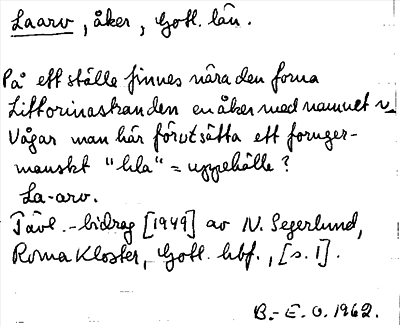 Laarv, åker, Gotl. län.
På ett ställe finnes nära den forna
Littorinastranden en åker med namnet
Vågar man här förutsätta ett forngermanskt
"hla" = uppehälle?
La-arv.
Tävl.-bidrag [1949] av N. Segerlund,
Roma Kloster, Gotl. hbf., [s. 1].
B.-E. O. 1962.